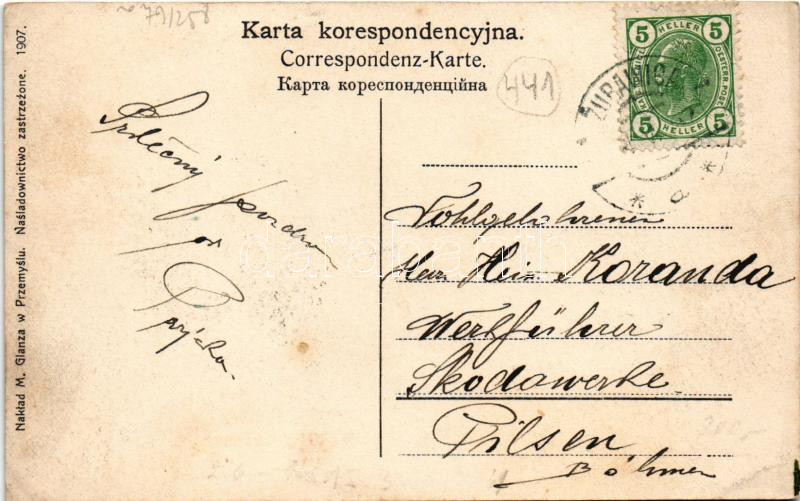 79/258
Karta korespondencyjna.
Correspondenz-Karte.
Карта кореспонденційна
441
5 HELLER 5
5 HELLER 5
ZURAWICA
Nakład M. Glanza w Przemyślu. Naśladownictwo zastrzeżone. 1907.
Srdečný
pozdrav
od
Wohlgeborenen
Herrn Hein Koranda
Werkführer
Skodawerke
Pilsen
Böhmen
darabanth